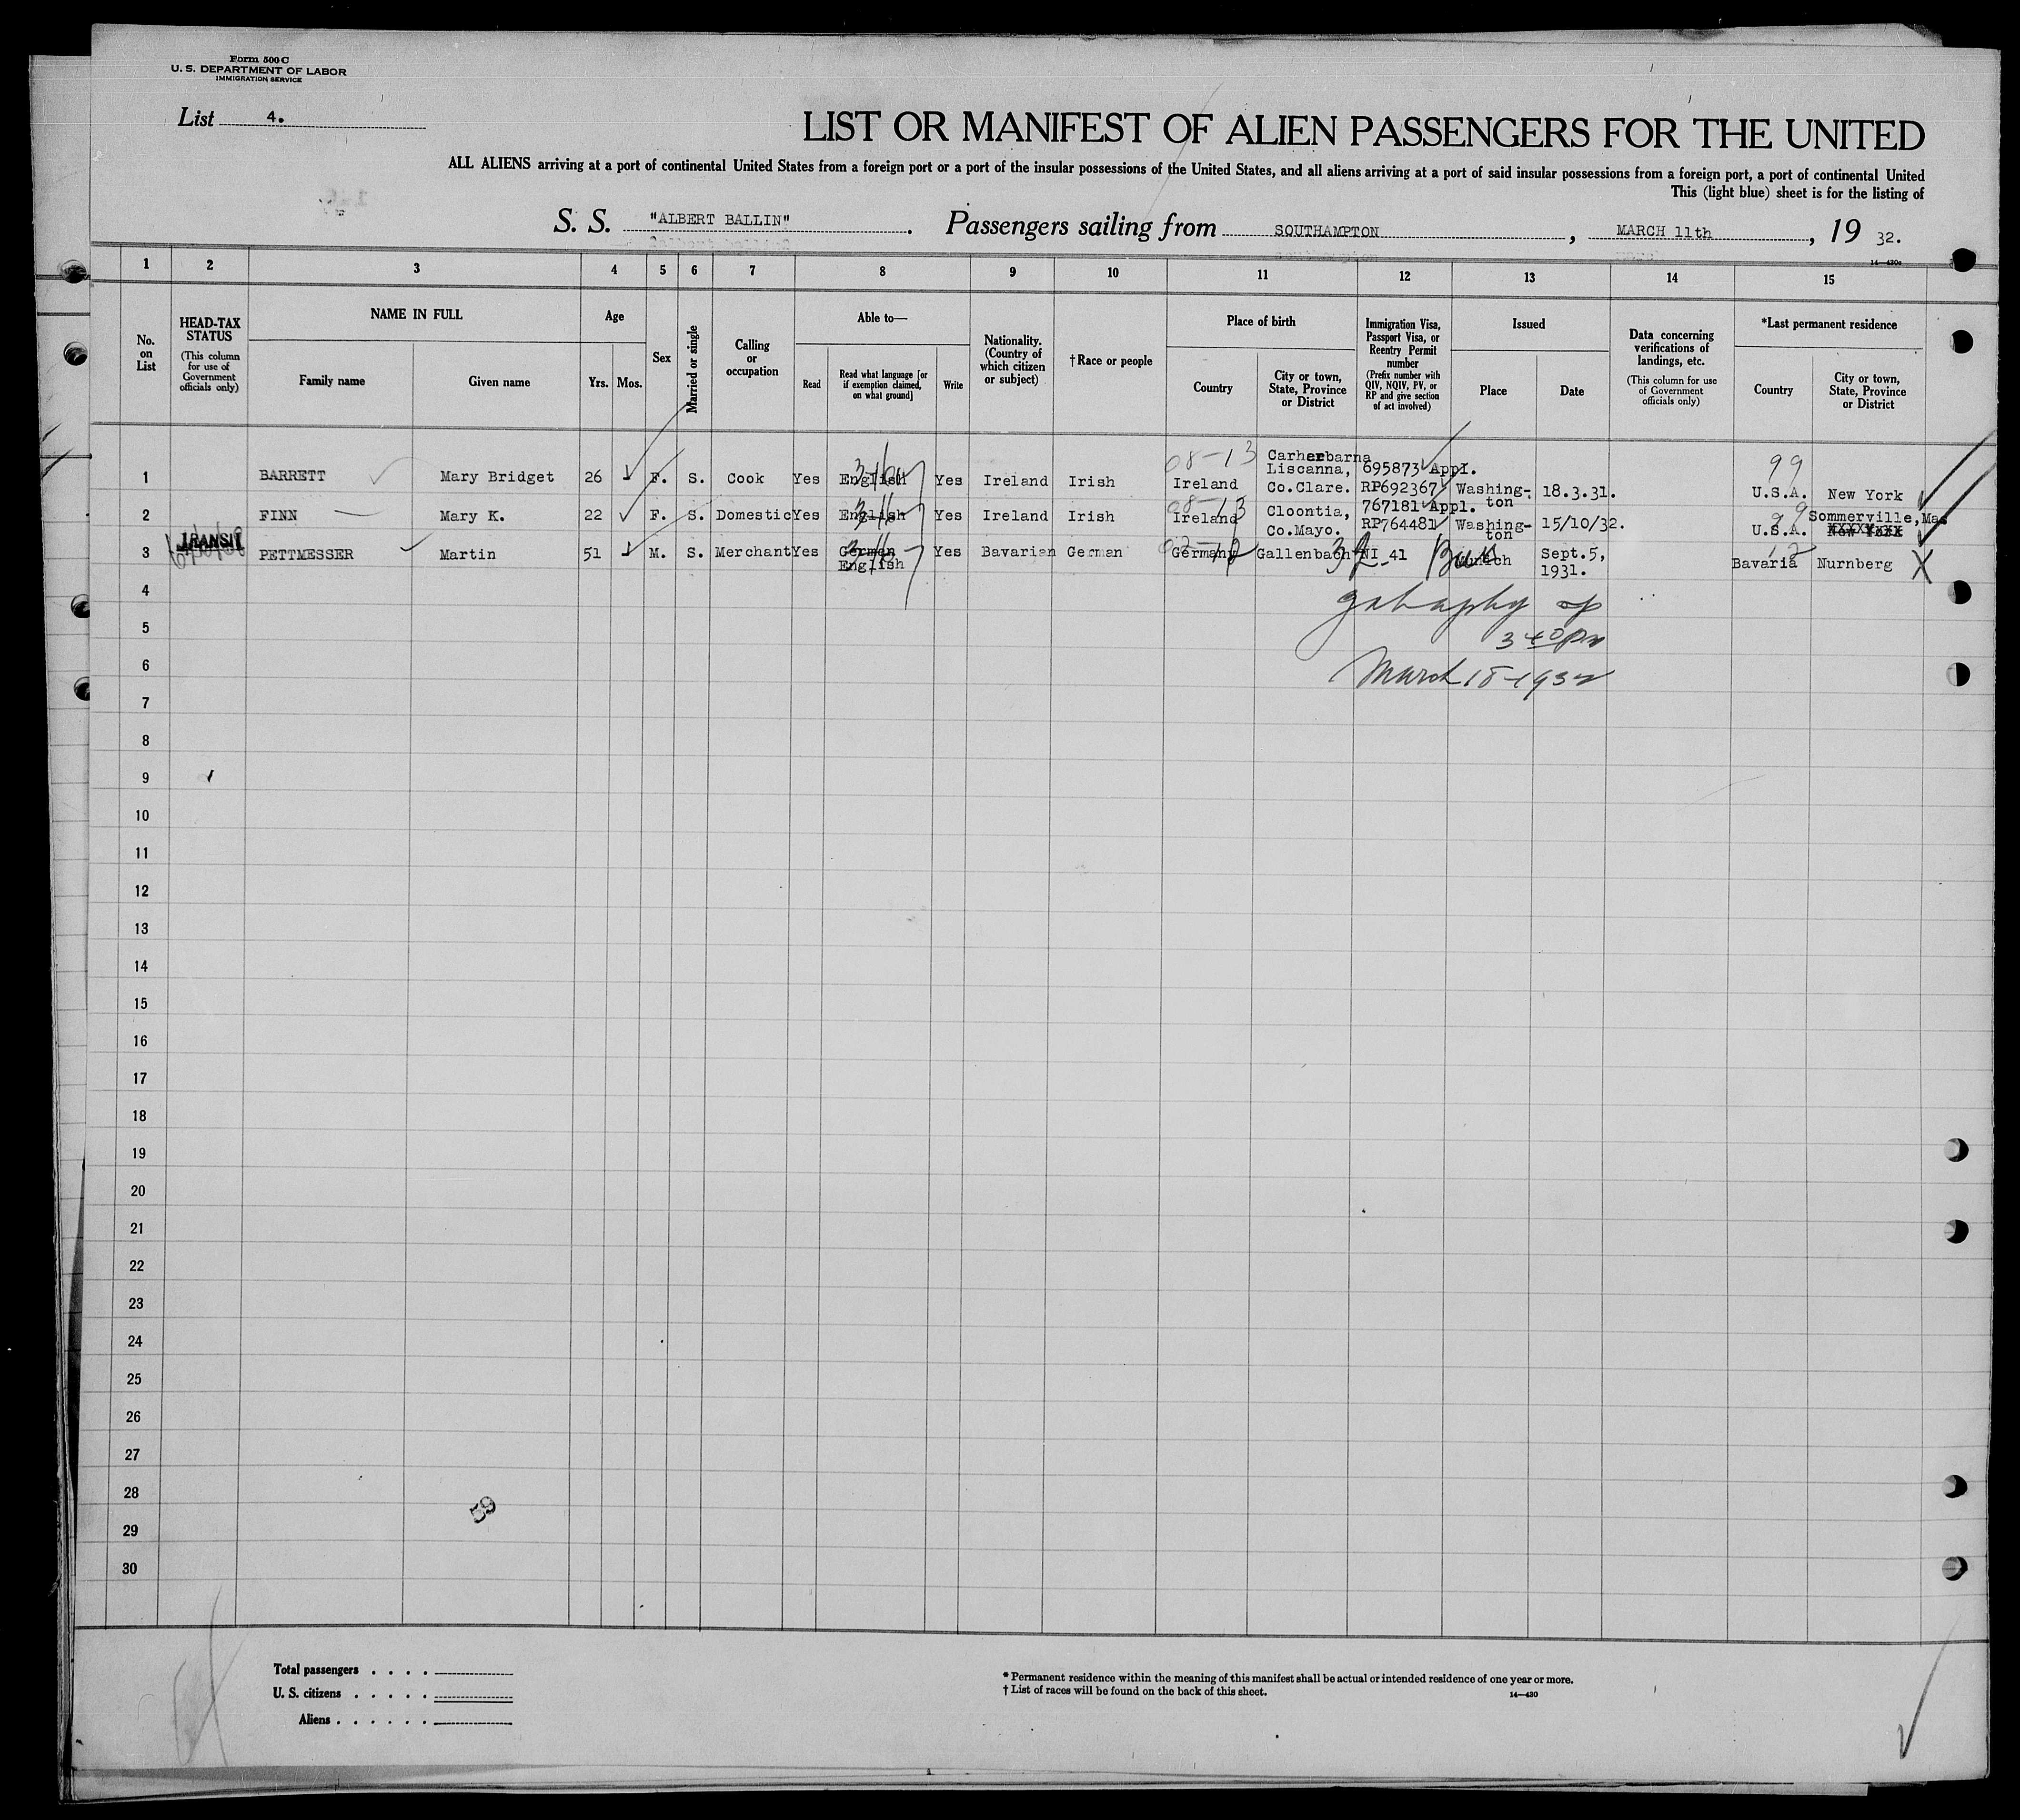 Form 500 C
U. S. DEPARTMENT OF LABOR
IMMIGRATION SERVICE
List 4.
LIST OR MANIFEST OF ALIEN PASSENGERS FOR THE UNITED
ALL ALIENS arriving at a port of continental United States from a foreign port or a port of the insular possessions of the United States, and all aliens arriving at a port of said insular possessions from a foreign port, a port of continental United
This (light blue) sheet is for the listing of
S. S. "ALBERT BALLIN". Passengers sailing from SOUTHAMPTON, MARCH 11th, 19 32.
14—430c
1 2 3 4 5 6 7 8 9 10 11 12 13 14 15
No. on List
HEAD-TAX STATUS
(This column for use of Government officials only)
NAME IN FULL
Family name
Given name
Age
Yrs. Mos.
Sex
Married or single
Calling or occupation
Able to—
Read
Read what language [or if exemption claimed, on what ground]
Write
Nationality. (Country of which citizen or subject)
† Race or people
Place of birth
Country
City or town, State, Province or District
Immigration Visa, Passport Visa, or Reentry Permit number
(Prefix number with QIV, NQIV, PV, or RP and give section of act involved)
Issued
Place
Date
Data concerning verifications of landings, etc.
(This column for use of Government officials only)
*Last permanent residence
Country
City or town, State, Province or District
1 BARRETT Mary Bridget 26 F. S. Cook Yes English Yes Ireland Irish 08-13 Ireland Carherbarna Liscanna, Co.Clare. 695873 Appl. RP692367 Washington 18.3.31. 99 U.S.A. New York
2 FINN Mary K. 22 F. S. Domestic Yes English Yes Ireland Irish 08-13 Ireland Cloontia, Co.Mayo. 767181 Appl. RP764481 Washington 15/10/32. 99 U.S.A. Sommerville, Mas New York
3 TRANSIT PETTMESSER Martin 51 M. S. Merchant Yes German English Yes Bavarian German Germany Gallenbach NI 41 Munich Sept.5, 1931. Bavaria Nurnberg X
3 40 pm
March 18-1932
4
5
6
7
8
9
10
11
12
13
14
15
16
17
18
19
20
21
22
23
24
25
26
27
28
29
30
59
Total passengers . . . .
U. S. citizens . . . . .
Aliens . . . . . .
* Permanent residence within the meaning of this manifest shall be actual or intended residence of one year or more.
† List of races will be found on the back of this sheet.
14—430